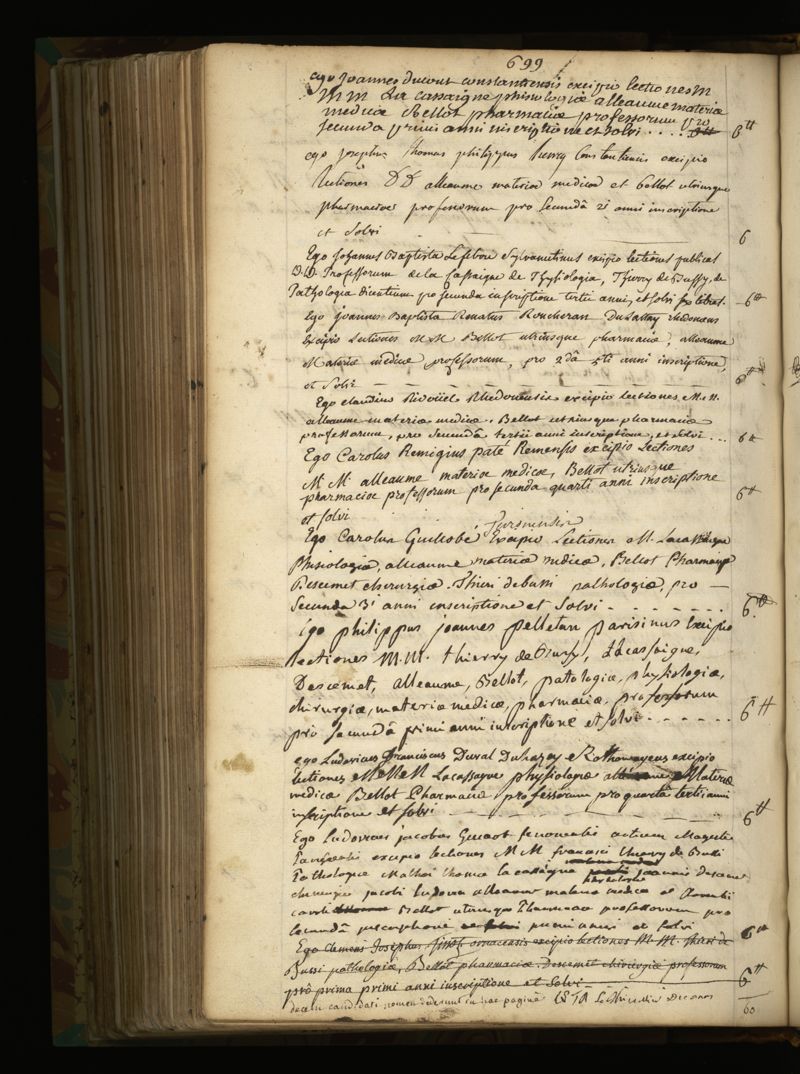 699
ego joannes ducout constantiensis excipio lectiones M
M M La cassaigne phisiologiæ alleaume materiæ
medicæ Bellot pharmaciæ professorum pro
secunda primi anni inscriptione et solvi . . . . 6tt
ego josephus thomas philippus henry Constantiensis excipio
lectiones D D alleaume materiæ medicæ et bellot utriusque
pharmaciæ professorum pro secundâ 2i anni inscriptione
et solvi 6
Ego Johannes Baptista Lefebvre Sylvanectinus excipio lectiones publicas
D.D. Professorum de la Cassaigne de Physiologia, Thierry de Bussy, de
Pathologia dicentium pro secunda inscriptione tertii anni, et solvi sex libras. 6tt
Ego joannes Baptista Renatus Duhasay rhedonens
Excipio Lectiones M M Bellot utriusque pharmaciæ, alleaume
Materiæ medicæ professorum, pro 2dâ anni inscriptione,
et Solvi 6tt
Ego claudius Rhedonensis excipio lectiones M. M.
alleaume materiæ medicæ, Bellot utriusque pharmaciæ
professorum, pro Secundâ tertii anni inscriptione, et solvi . . . 6tt
Ego Carolus Remigius paté Remensis excipio Lectiones
M M alleaume materiæ medicæ, Bellot utriusque
pharmaciæ professorum pro secunda quarti anni inscriptione
et solvi 6tt
Ego Carolus Guillobé Excipio Lectiones M. Lacassaigne
Phisiologiæ, alleaume materiæ medicæ, Bellot Pharmaciæ
Descemet chirurgiæ. Thieri debussi pathologiæ, pro
Secunda 3i anni inscriptione et Solvi - - - - - - - 6.tt
Ego philippus joannes pelletan parisinus Excipio
lectiones M.M. thierry de Bussy, Lacassaigne,
Descemet, alleaume, Bellot, patologiæ, physiologiæ,
chirurgiæ, materiæ medicæ, pharmaciæ, professorum
pro secundâ primi anni inscriptione et solvi - - - - - - - 6tt
ego Ludovicus franciscus Duval Duhazey Rothomagens excipio
lectiones MMMM Lacassagne physiologiæ alleaume Materiæ
medicæ Bellot Pharmaciæ professorum pro quartâ tertii anni
inscriptione et solvi 6tt
Ego Ludovicus jacobus artium Magister
Parisiensis excipio lectiones M M francisci thierry de Bussi
Pathologiæ Mathei thomæ la cassaigne joannis Descemet
chirurgiæ jacobi Ludovici alleaume materiæ medicæ et
caroli Bellot utriusque Pharmaciæ professorum pro
secunda inscriptione primi anni et solvi 6tt
Ego Clemens Josephus excipio lectiones M. M. thieri de
Bussi pathologiæ, Bellot pharmaciæ Descemet chirurgiæ professorum
pro prima primi anni inscriptione et Solvi 6tt
decem candidati nomen dederunt in hac paginâ Decanus 60